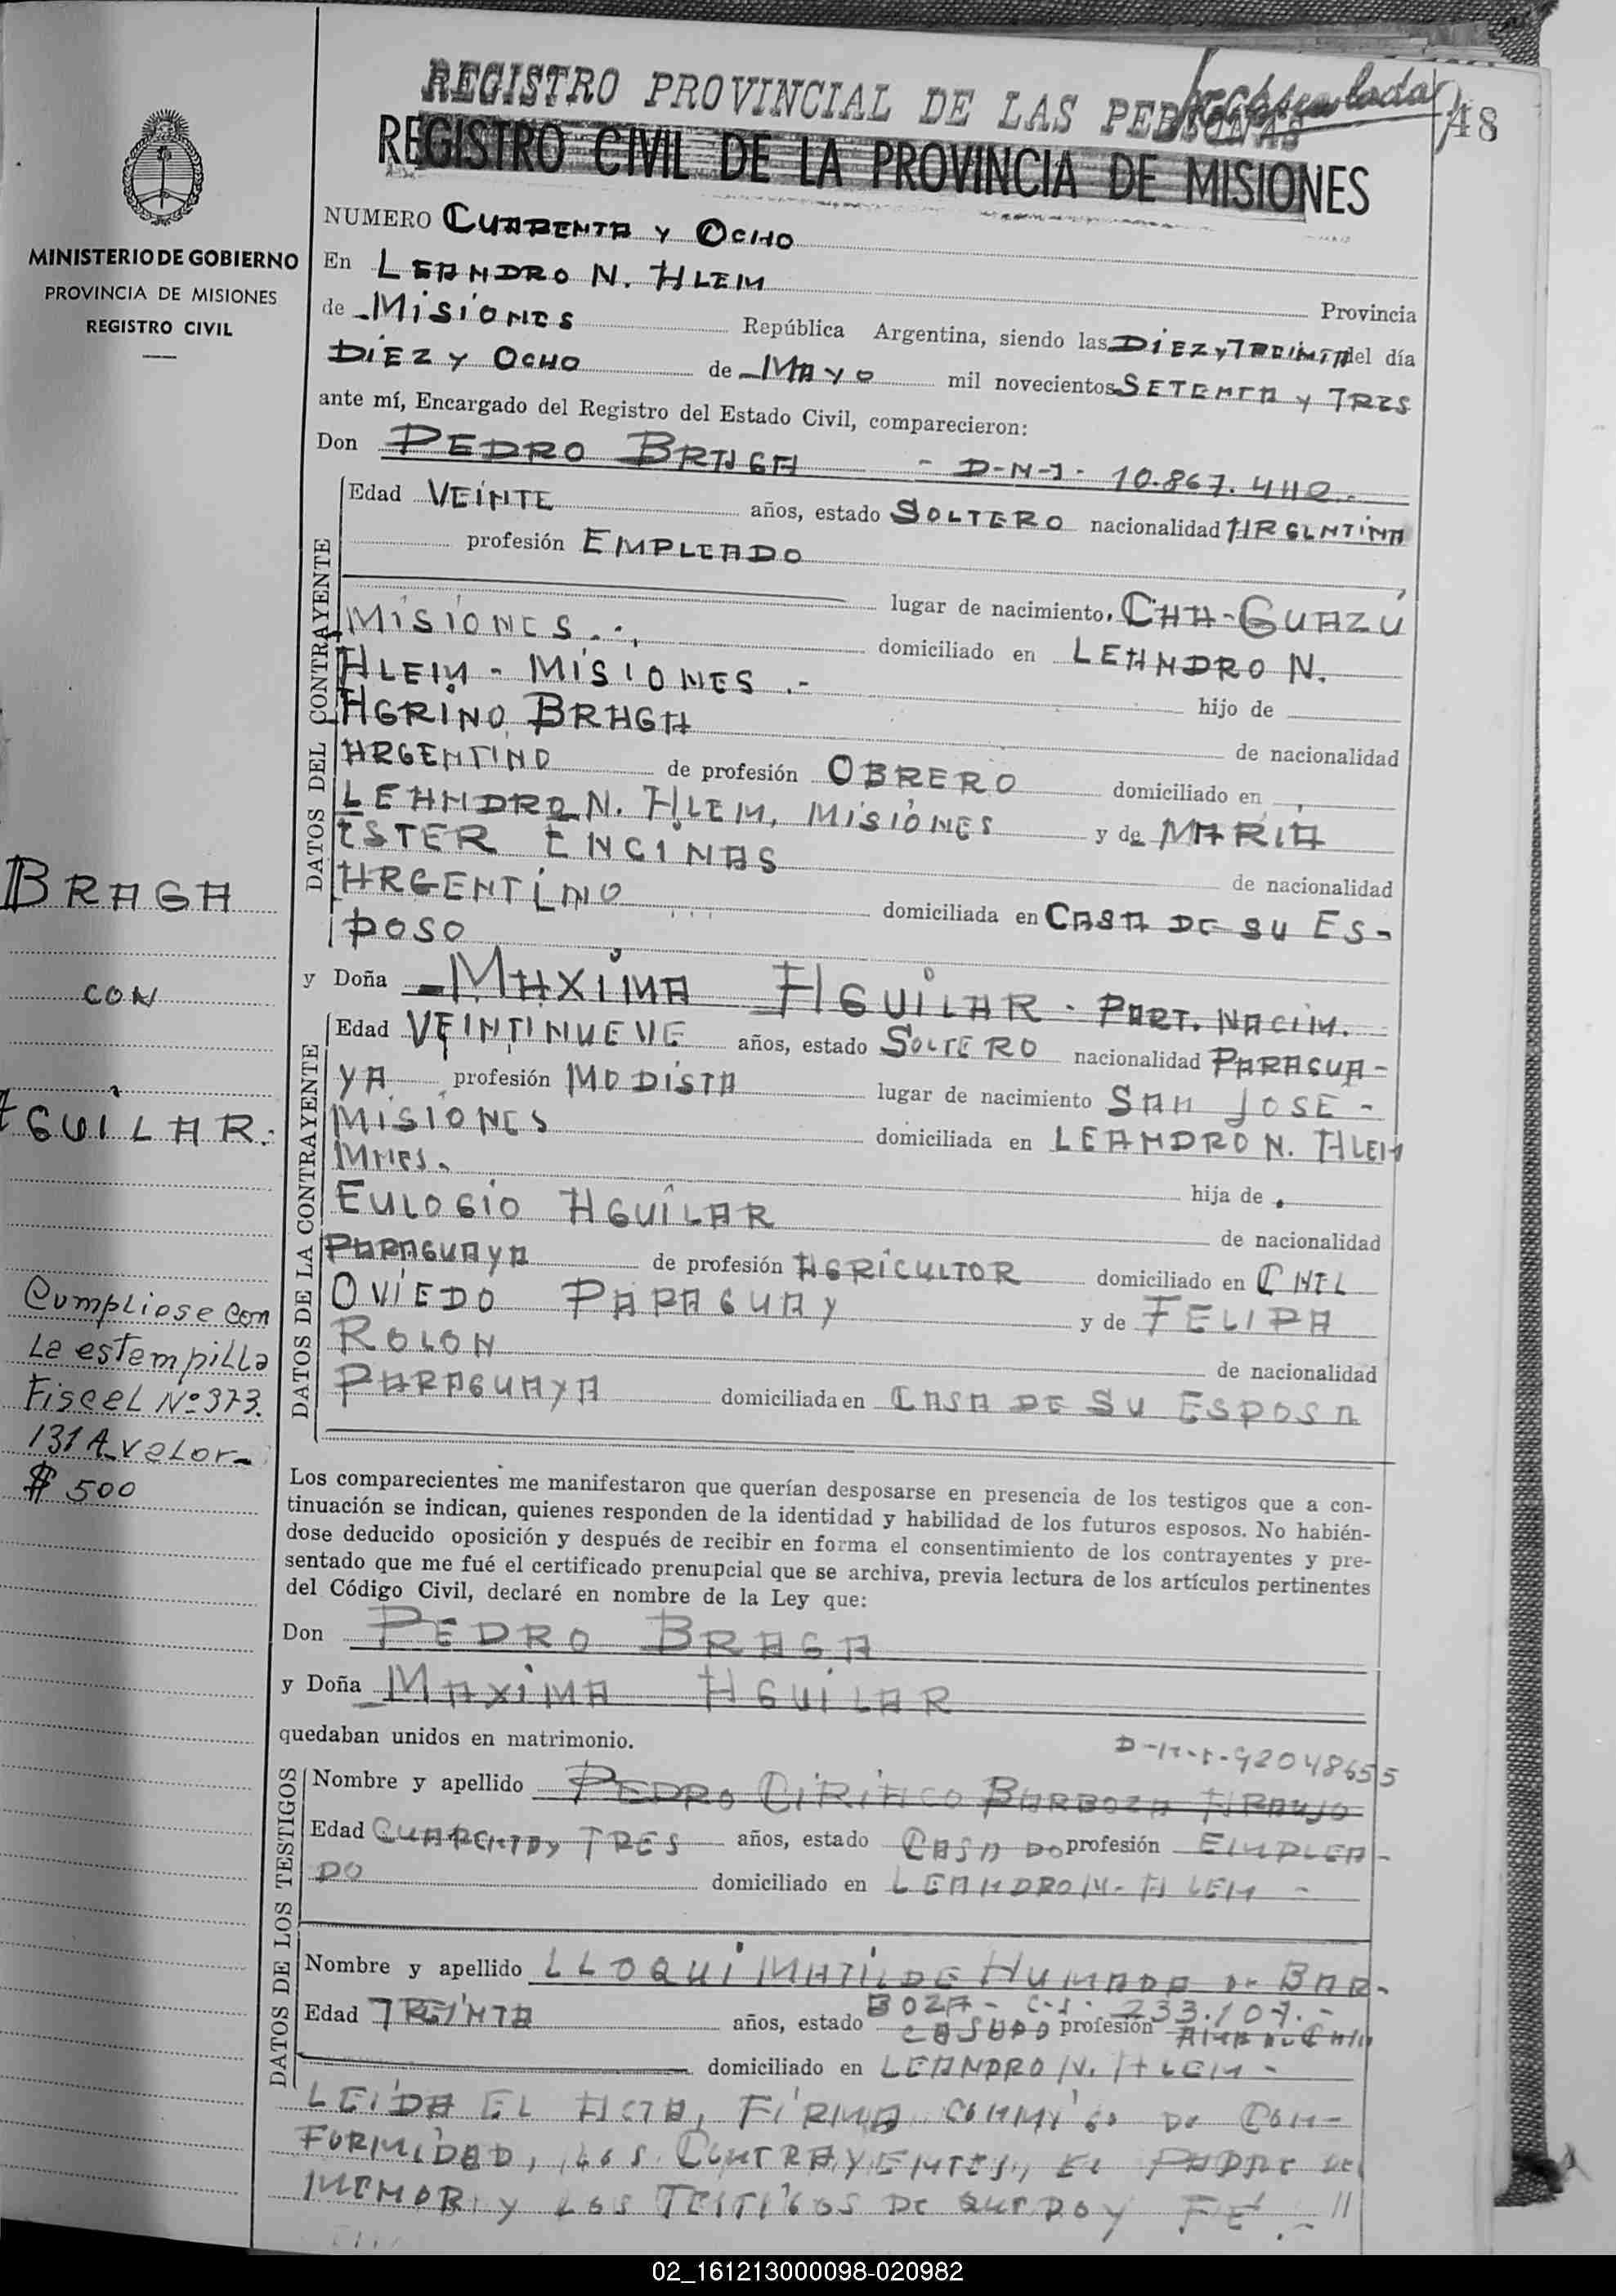 REGISTRO PROVINCIAL DE LAS PERSONAS
48
REGISTRO CIVIL DE LA PROVINCIA DE MISIONES
MINISTERIO DE GOBIERNO
PROVINCIA DE MISIONES
REGISTRO CIVIL
NUMERO CUARENTA Y OCHO
En LEANDRO N. ALEM
Provincia
de MISIONES República Argentina, siendo las DIEZ y TREINTA del día
DIEZ Y OCHO de MAYO mil novecientos SETENTA Y TRES
ante mí, Encargado del Registro del Estado Civil, comparecieron:
Don PEDRO BRAGA - D-N-I- 10.867.4112.-
DATOS DEL CONTRAYENTE
Edad VEINTE años, estado SOLTERO nacionalidad ARGENTINA
profesión EMPLEADO
lugar de nacimiento, CAA-GUAZÚ
MISIONES.-, domiciliado en LEANDRO N.
ALEM - MISIONES.- hijo de
AGRIÑO BRAGA de nacionalidad
ARGENTINO de profesión OBRERO domiciliado en
LEANDRO N. ALEM, MISIONES y de MARIA
ESTER ENCINAS de nacionalidad
ARGENTINO domiciliada en CASA DE SU ES-
POSO
y Doña MAXIMA AGUILAR - PART. NACIM.
DATOS DE LA CONTRAYENTE
Edad VEINTINUEVE años, estado SOLTERO nacionalidad PARAGUA-
YA profesión MODISTA lugar de nacimiento SAN JOSE -
MISIONES domiciliada en LEANDRO N. ALEM
MNES. hija de
EULOGIO AGUILAR de nacionalidad
PARAGUAYA de profesión AGRICULTOR domiciliado en CNEL
OVIEDO PARAGUAY y de FELIPA
ROLON de nacionalidad
PARAGUAYA domiciliada en CASA DE SU ESPOSA
BRAGA
CON
AGUILAR.
Cumpliose con
La estampilla
Fiscal Nº 373.
131 A valor
$ 500
Los comparecientes me manifestaron que querían desposarse en presencia de los testigos que a con-
tinuación se indican, quienes responden de la identidad y habilidad de los futuros esposos. No habién-
dose deducido oposición y después de recibir en forma el consentimiento de los contrayentes y pre-
sentado que me fué el certificado prenupcial que se archiva, previa lectura de los artículos pertinentes
del Código Civil, declaré en nombre de la Ley que:
Don PEDRO BRAGA
y Doña MAXIMA AGUILAR
quedaban unidos en matrimonio.
D-N-I-92048655
DATOS DE LOS TESTIGOS
Nombre y apellido PEDRO CIRIACO BARBOZA ARAUJO
Edad CUARENTA y TRES años, estado CASADO profesión EMPLEA-
DO domiciliado en LEANDRO N. ALEM -
Nombre y apellido LLOQUI MATILDE HUMADA DE BAR-
BOZA - C-I- 233.107.-
Edad TREINTA años, estado CASADO profesión
domiciliado en LEANDRO N. ALEM -
LEIDA EL ACTA, FIRMA CONMIGO DE CON-
FORMIDAD, LOS CONTRAYENTES, EL PADRE DEL
MENOR y LOS TESTIGOS DE QUE DOY FE.- //
02_161213000098-020982